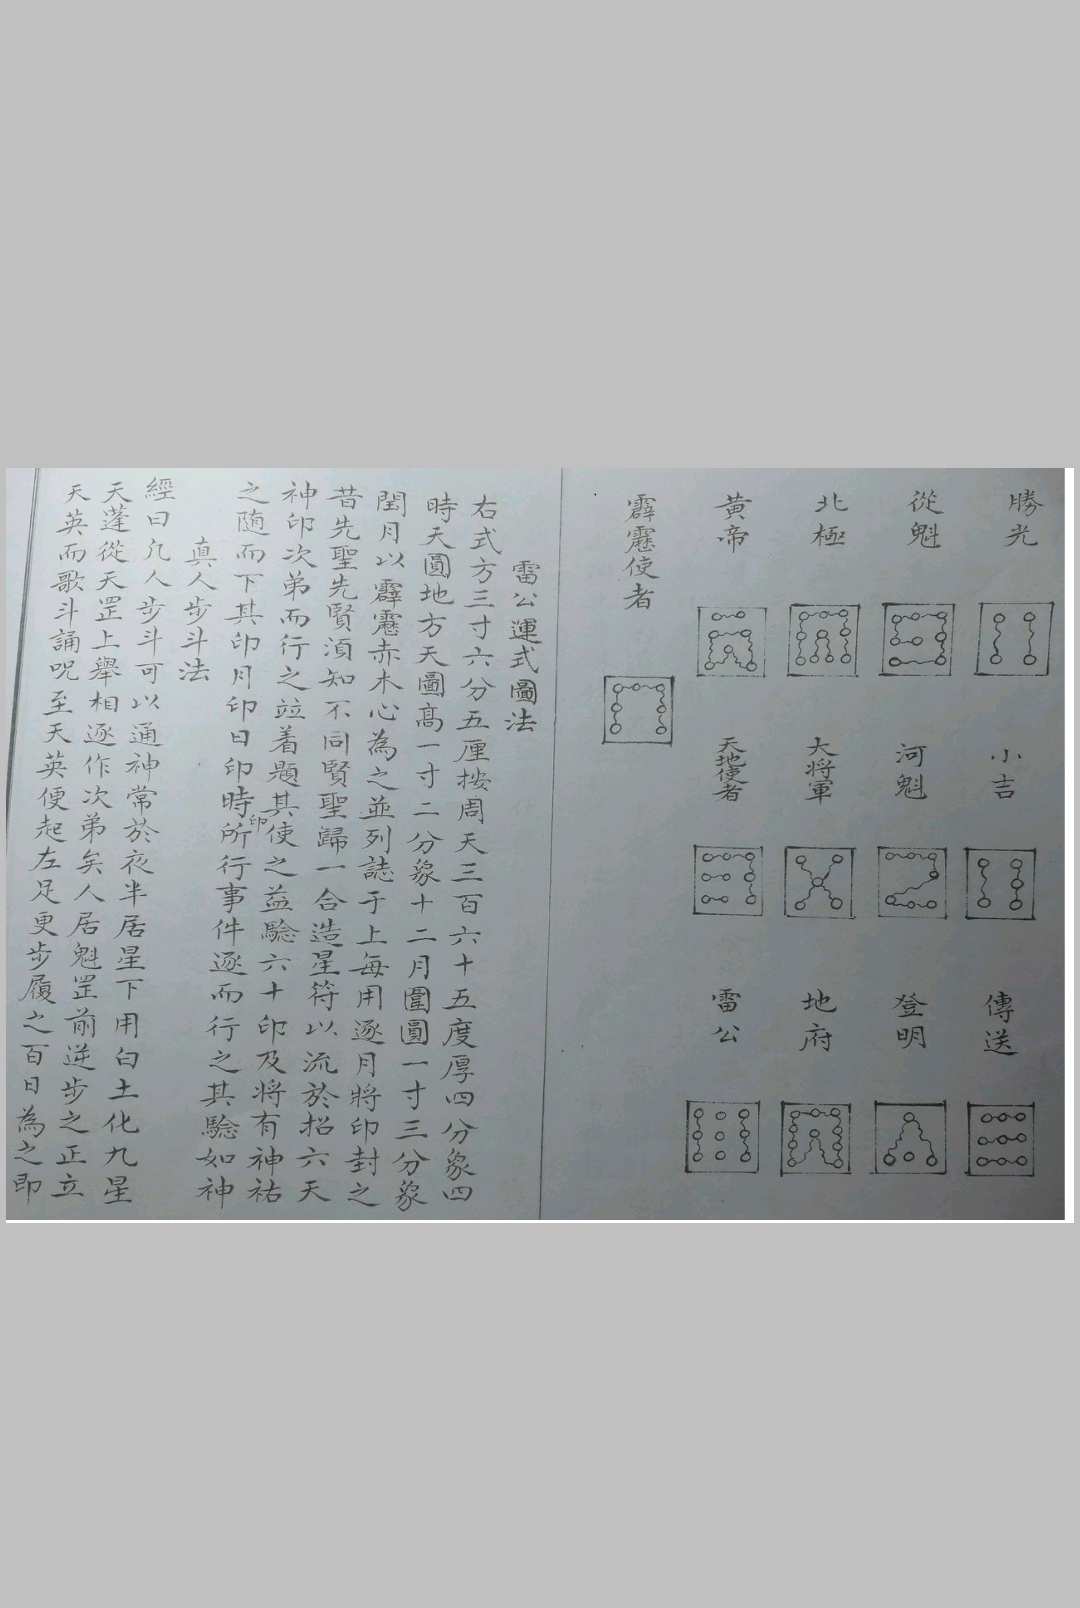 勝光
小吉
傳送
從魁
河魁
登明
北極
大將軍
地府
黃帝
天地使者
雷公
霹靂使者
雷公運式圖法
右式方三寸六分五厘按周天三百六十五度厚四分象四
時天圓地方天圖高一寸二分象十二月圍圓一寸三分象
閏月以霹靂赤木心為之並列誌于上每用逐月將印封之
昔先聖先賢湏知不同賢聖歸一合造星符以流於招六天
神印次弟而行之竝着題其使之益驗六十印及將有神祐
之随而下其印月印日印時印所行事件逐而行之其驗如神
真人步斗法
經曰凡人步斗可以通神常於夜半居星下用白土化九星
天蓬從天罡上舉相逐作次弟矣人居魁罡前逆步之正立
天英而歌斗誦呪至天英便起左足更步履之百日為之即